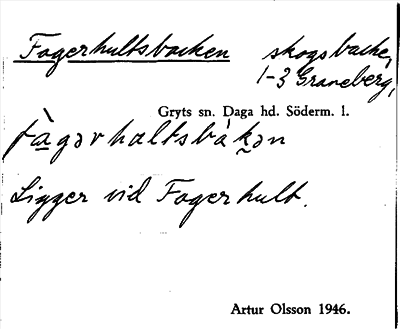 Fagerhultsbacken skogsbacke,
1-3 Graneberg,
Gryts sn. Daga hd. Söderm. l.
fàgərhaltsbàkən
Ligger vid Fagerhult.
Artur Olsson 1946.